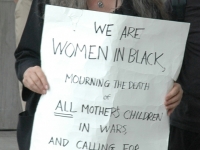 WE ARE
WOMEN IN BLACK,
MOURNING THE DEATH
of
ALL MOTHER'S CHILDREN
IN WARS
AND CALLING FOR